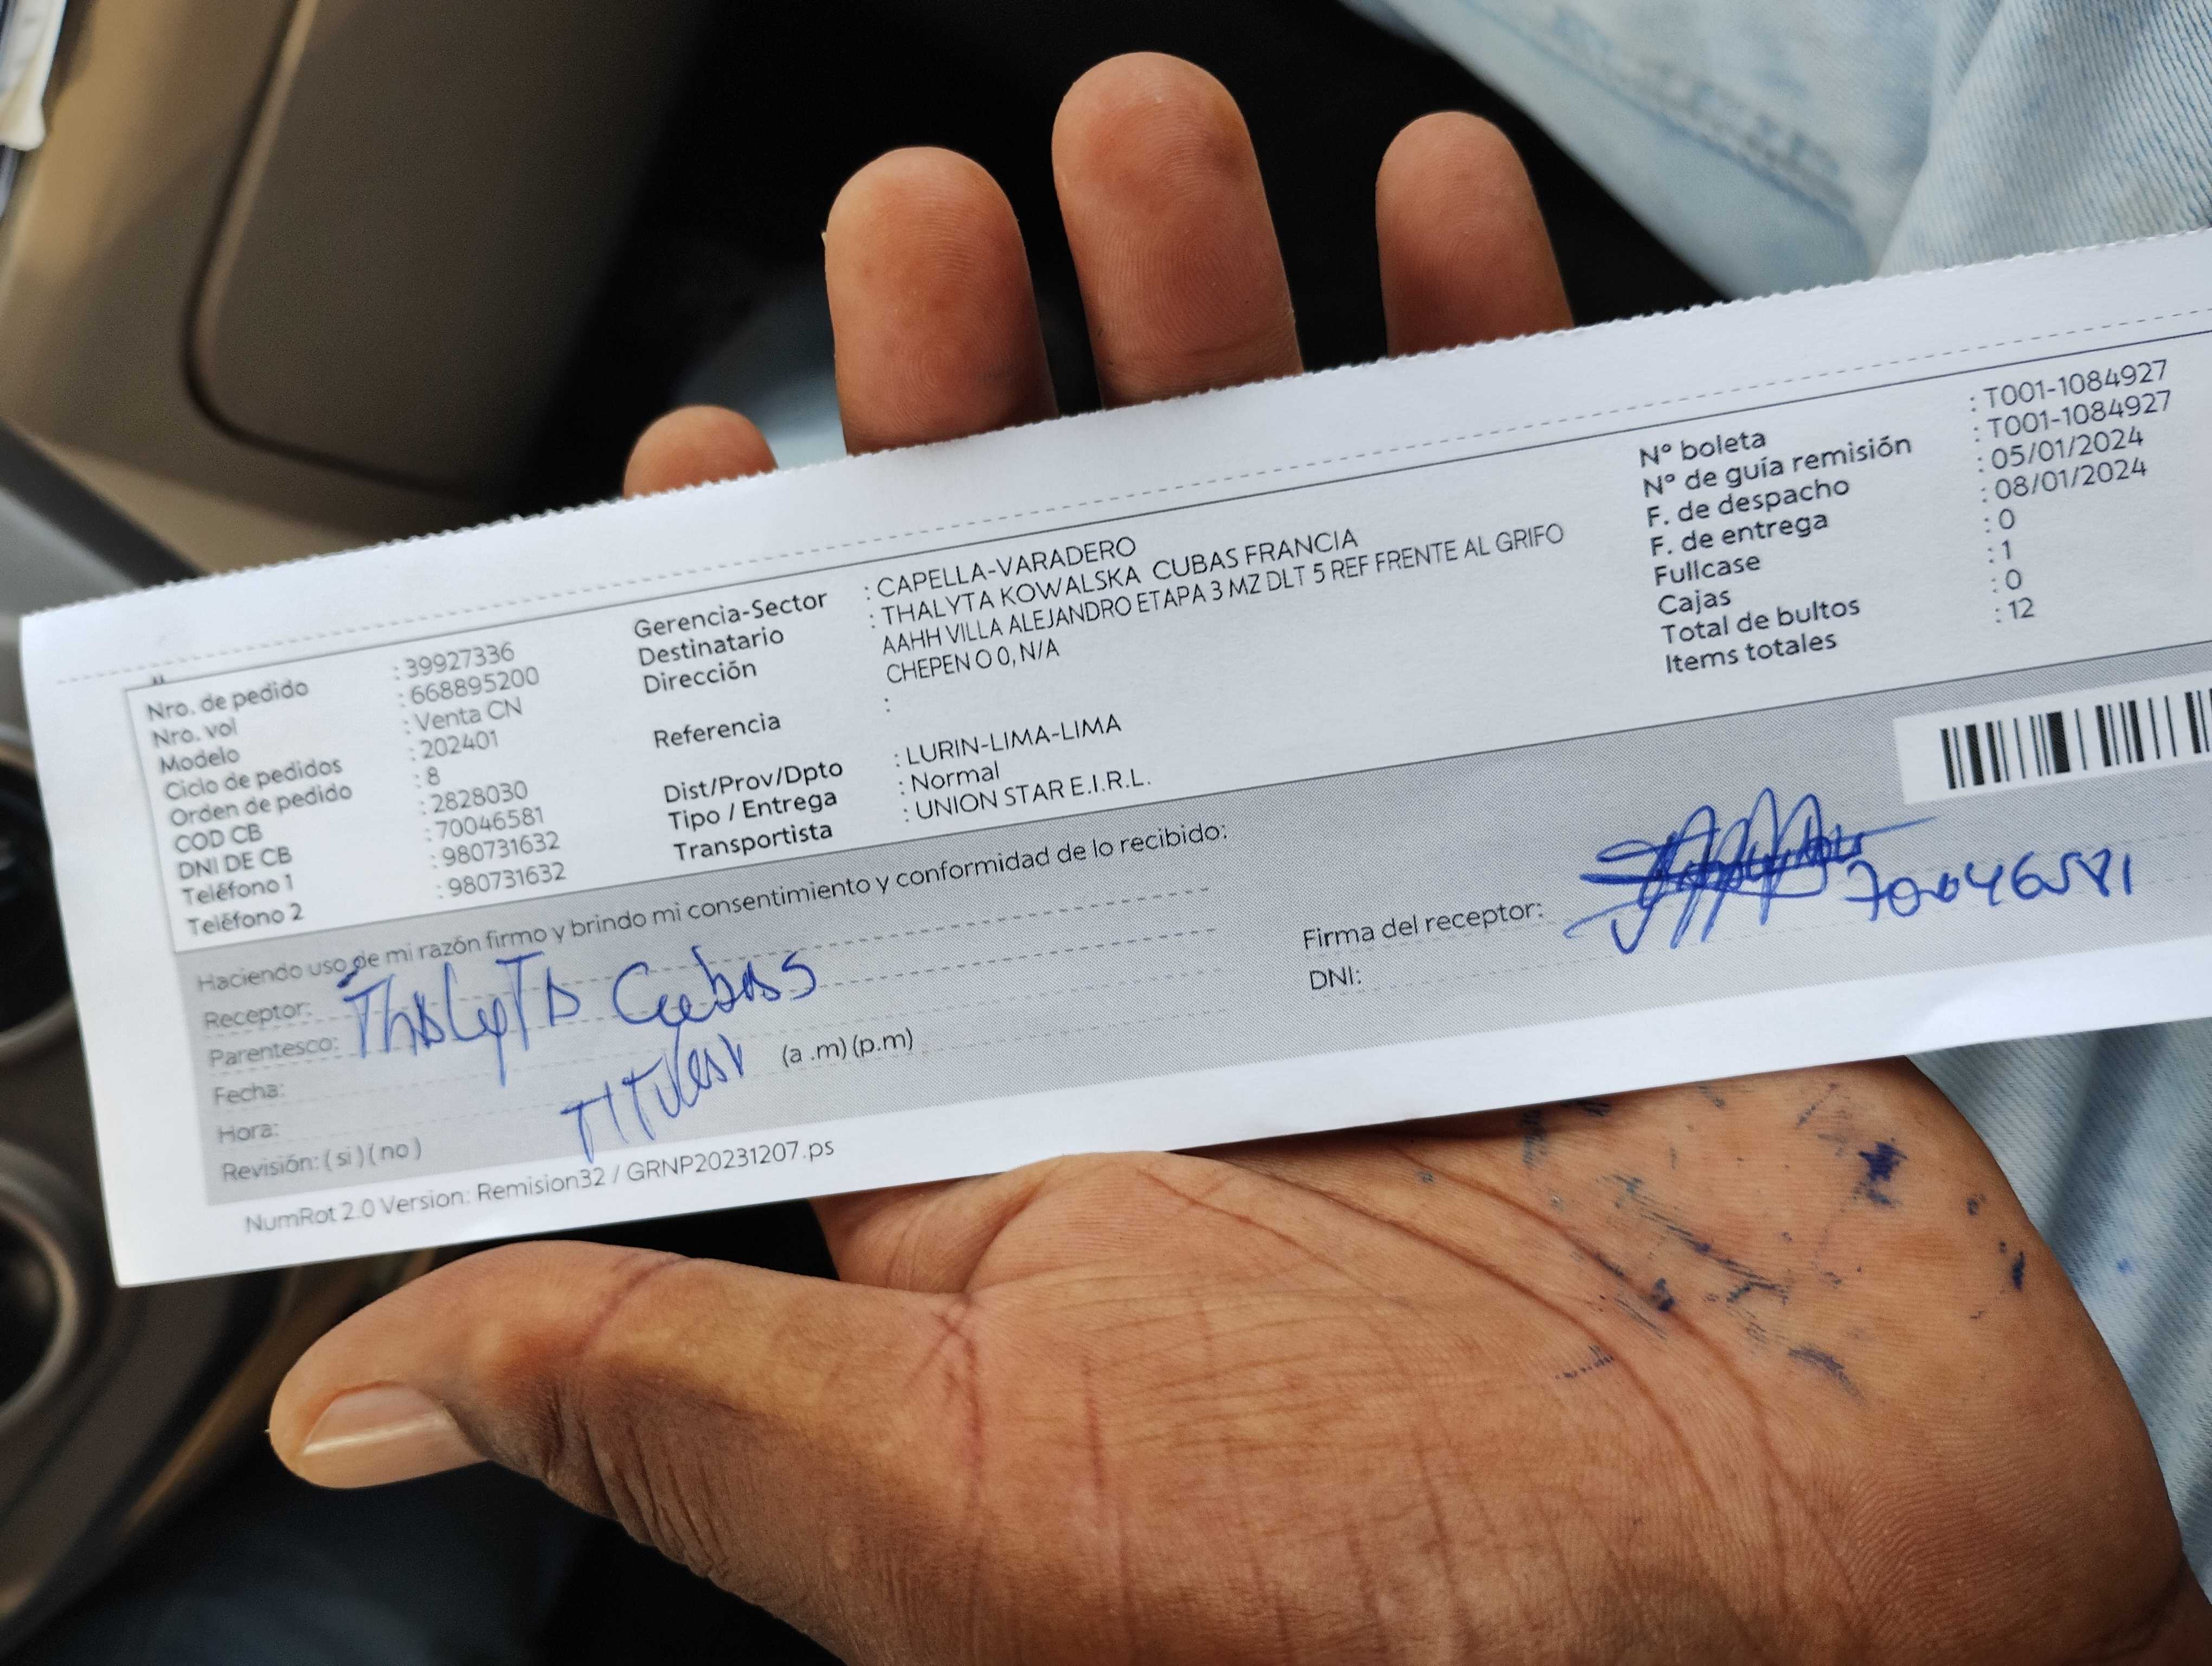 Nro. de pedido : 39927336
Nro. vol : 668895200
Modelo : Venta CN
Ciclo de pedidos : 202401
Orden de pedido : 8
COD CB : 2828030
DNI DE CB : 70046581
Teléfono 1 : 980731632
Teléfono 2 : 980731632
Gerencia-Sector : CAPELLA-VARADERO
Destinatario : THALYTA KOWALSKA CUBAS FRANCIA
Dirección AAHH VILLA ALEJANDRO ETAPA 3 MZ DLT 5 REF FRENTE AL GRIFO
CHEPEN O 0, N/A
Referencia :
Dist/Prov/Dpto : LURIN-LIMA-LIMA
Tipo / Entrega : Normal
Transportista : UNION STAR E.I.R.L.
N° boleta : T001-1084927
N° de guía remisión : T001-1084927
F. de despacho : 05/01/2024
F. de entrega : 08/01/2024
Fullcase : 0
Cajas : 1
Total de bultos : 0
Items totales : 12
Haciendo uso de mi razón firmo y brindo mi consentimiento y conformidad de lo recibido:
Receptor: Thalyta Cubas
Parentesco: Titular
Fecha:
Hora: (a .m) (p.m)
Revisión: ( si ) ( no )
Firma del receptor:
DNI: 70046581
NumRot 2.0 Version: Remision32 / GRNP20231207.ps